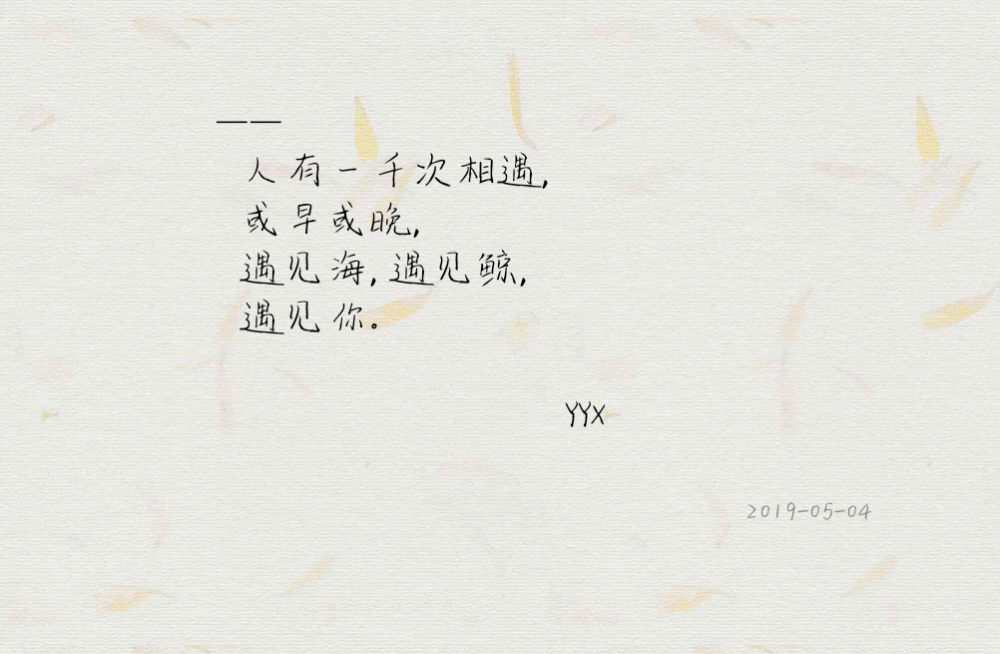 ——
人有一千次相遇,
或早或晚,
遇见海,遇见鲸,
遇见你。
YYX
2019-05-04